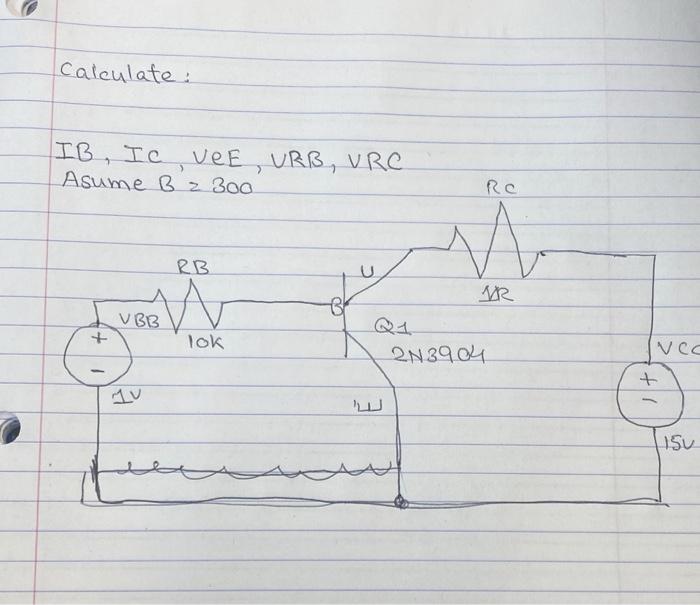 Calculate:
IB, IC, VCE, VRB, VRC
Asume B = 300
RC
RB
U
B
VBB
10K
Q1
2N3904
VCC
+
-
1V
E
+
-
15V